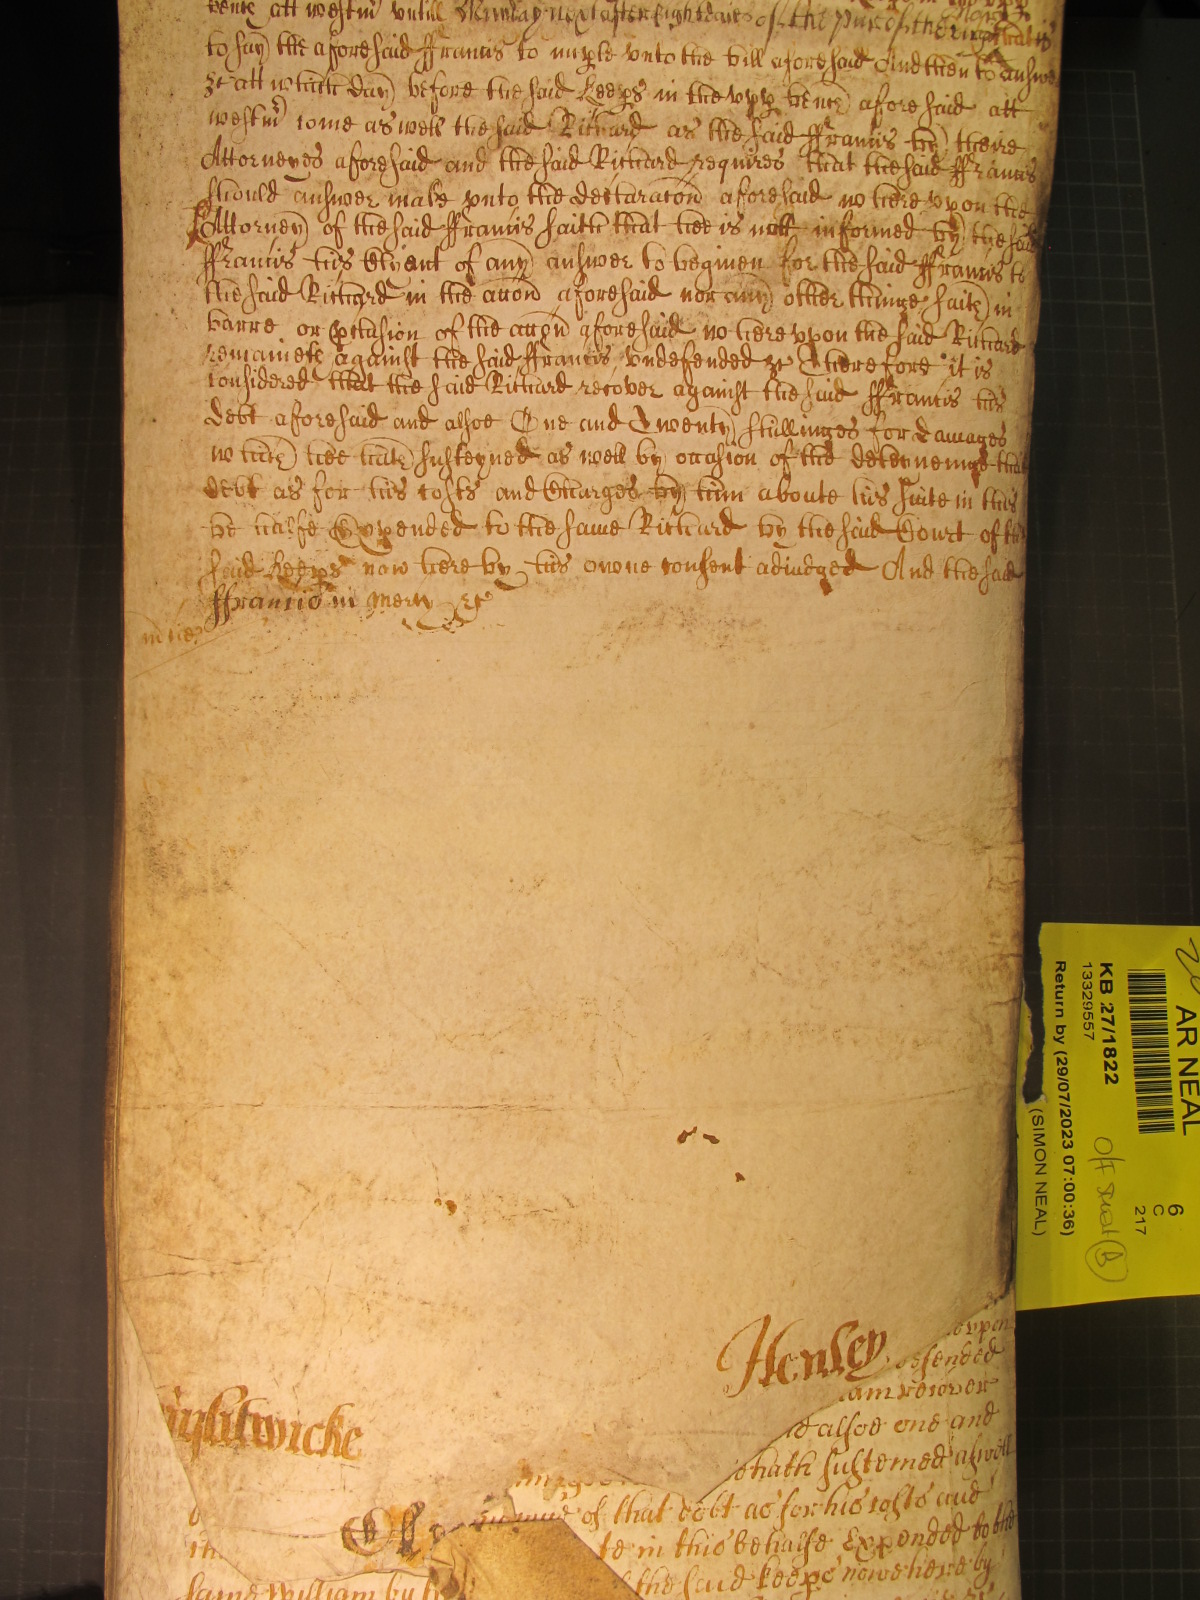 Bench att westm̃ untill Munday next after Eight daies of the pur of the
to say the aforesaid ffrancis to imple unto the bill aforesaid And then to answer
&c att which day before the said Keeps in the upp bench aforesaid att
westm̃ come aswell the said Richard as the said ffrancis by theire
Attorneyes aforesaid and the said Richard requires that the said ffrancis
should answer make unto the declaracon aforesaid whereupon the
Attorney of the said ffrancis saith that hee is nott informed by the said
ffrancis his Clyent of any answer to be given for the said ffrancis to
the said Richard in the accon aforesaid nor any other thinge saith in
barre or pclusion of the accon aforesaid whereupon the said Richard
remaineth against the said ffrancis undefended &c Therefore it is
considered that the said Richard recover against the said ffrancis his
debt aforesaid and alsoe One and Twenty shillinges for damages
which hee hath susteyned as well by occasion of the deteyneinge that
debt as for his costs and Charges by him aboute his suite in this
behalfe Expended to the same Richard by the said Court of the
said Keeps now here by his owne consent adiudged And the said
ffrancis in mercy &c
Henley
upon
defended
am recover
alsoe one and
hath susteined aswell
of that debt as for his costs and
te in this behalfe Expended to the
same William by the said Keeps nowe here by
AR NEAL
6
C
217
KB 27/1822
13329557
Return by (29/07/2023 07:00:36)
(SIMON NEAL)